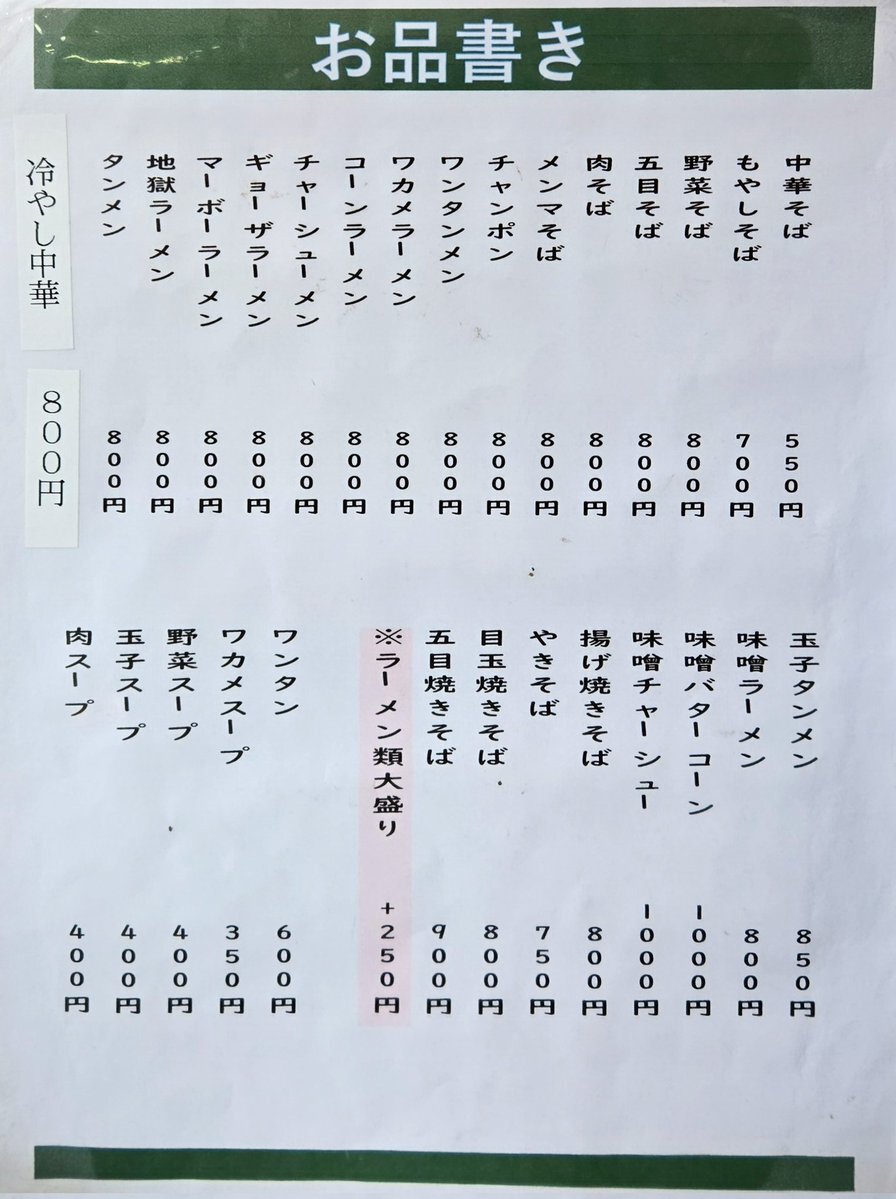 お品書き
中華そば 550円
もやしそば 700円
野菜そば 800円
五目そば 800円
肉そば 800円
メンマそば 800円
チャンポン 800円
ワンタンメン 800円
ワカメラーメン 800円
コーンラーメン 800円
チャーシューメン 800円
ギョーザラーメン 800円
マーボーラーメン 800円
地獄ラーメン 800円
タンメン 800円
冷やし中華 800円
玉子タンメン 850円
味噌ラーメン 800円
味噌バターコーン 1000円
味噌チャーシュー 1000円
揚げ焼きそば 800円
やきそば 750円
目玉焼きそば 800円
五目焼きそば 900円
※ラーメン類大盛り +250円
ワンタン 600円
ワカメスープ 350円
野菜スープ 400円
玉子スープ 400円
肉スープ 400円